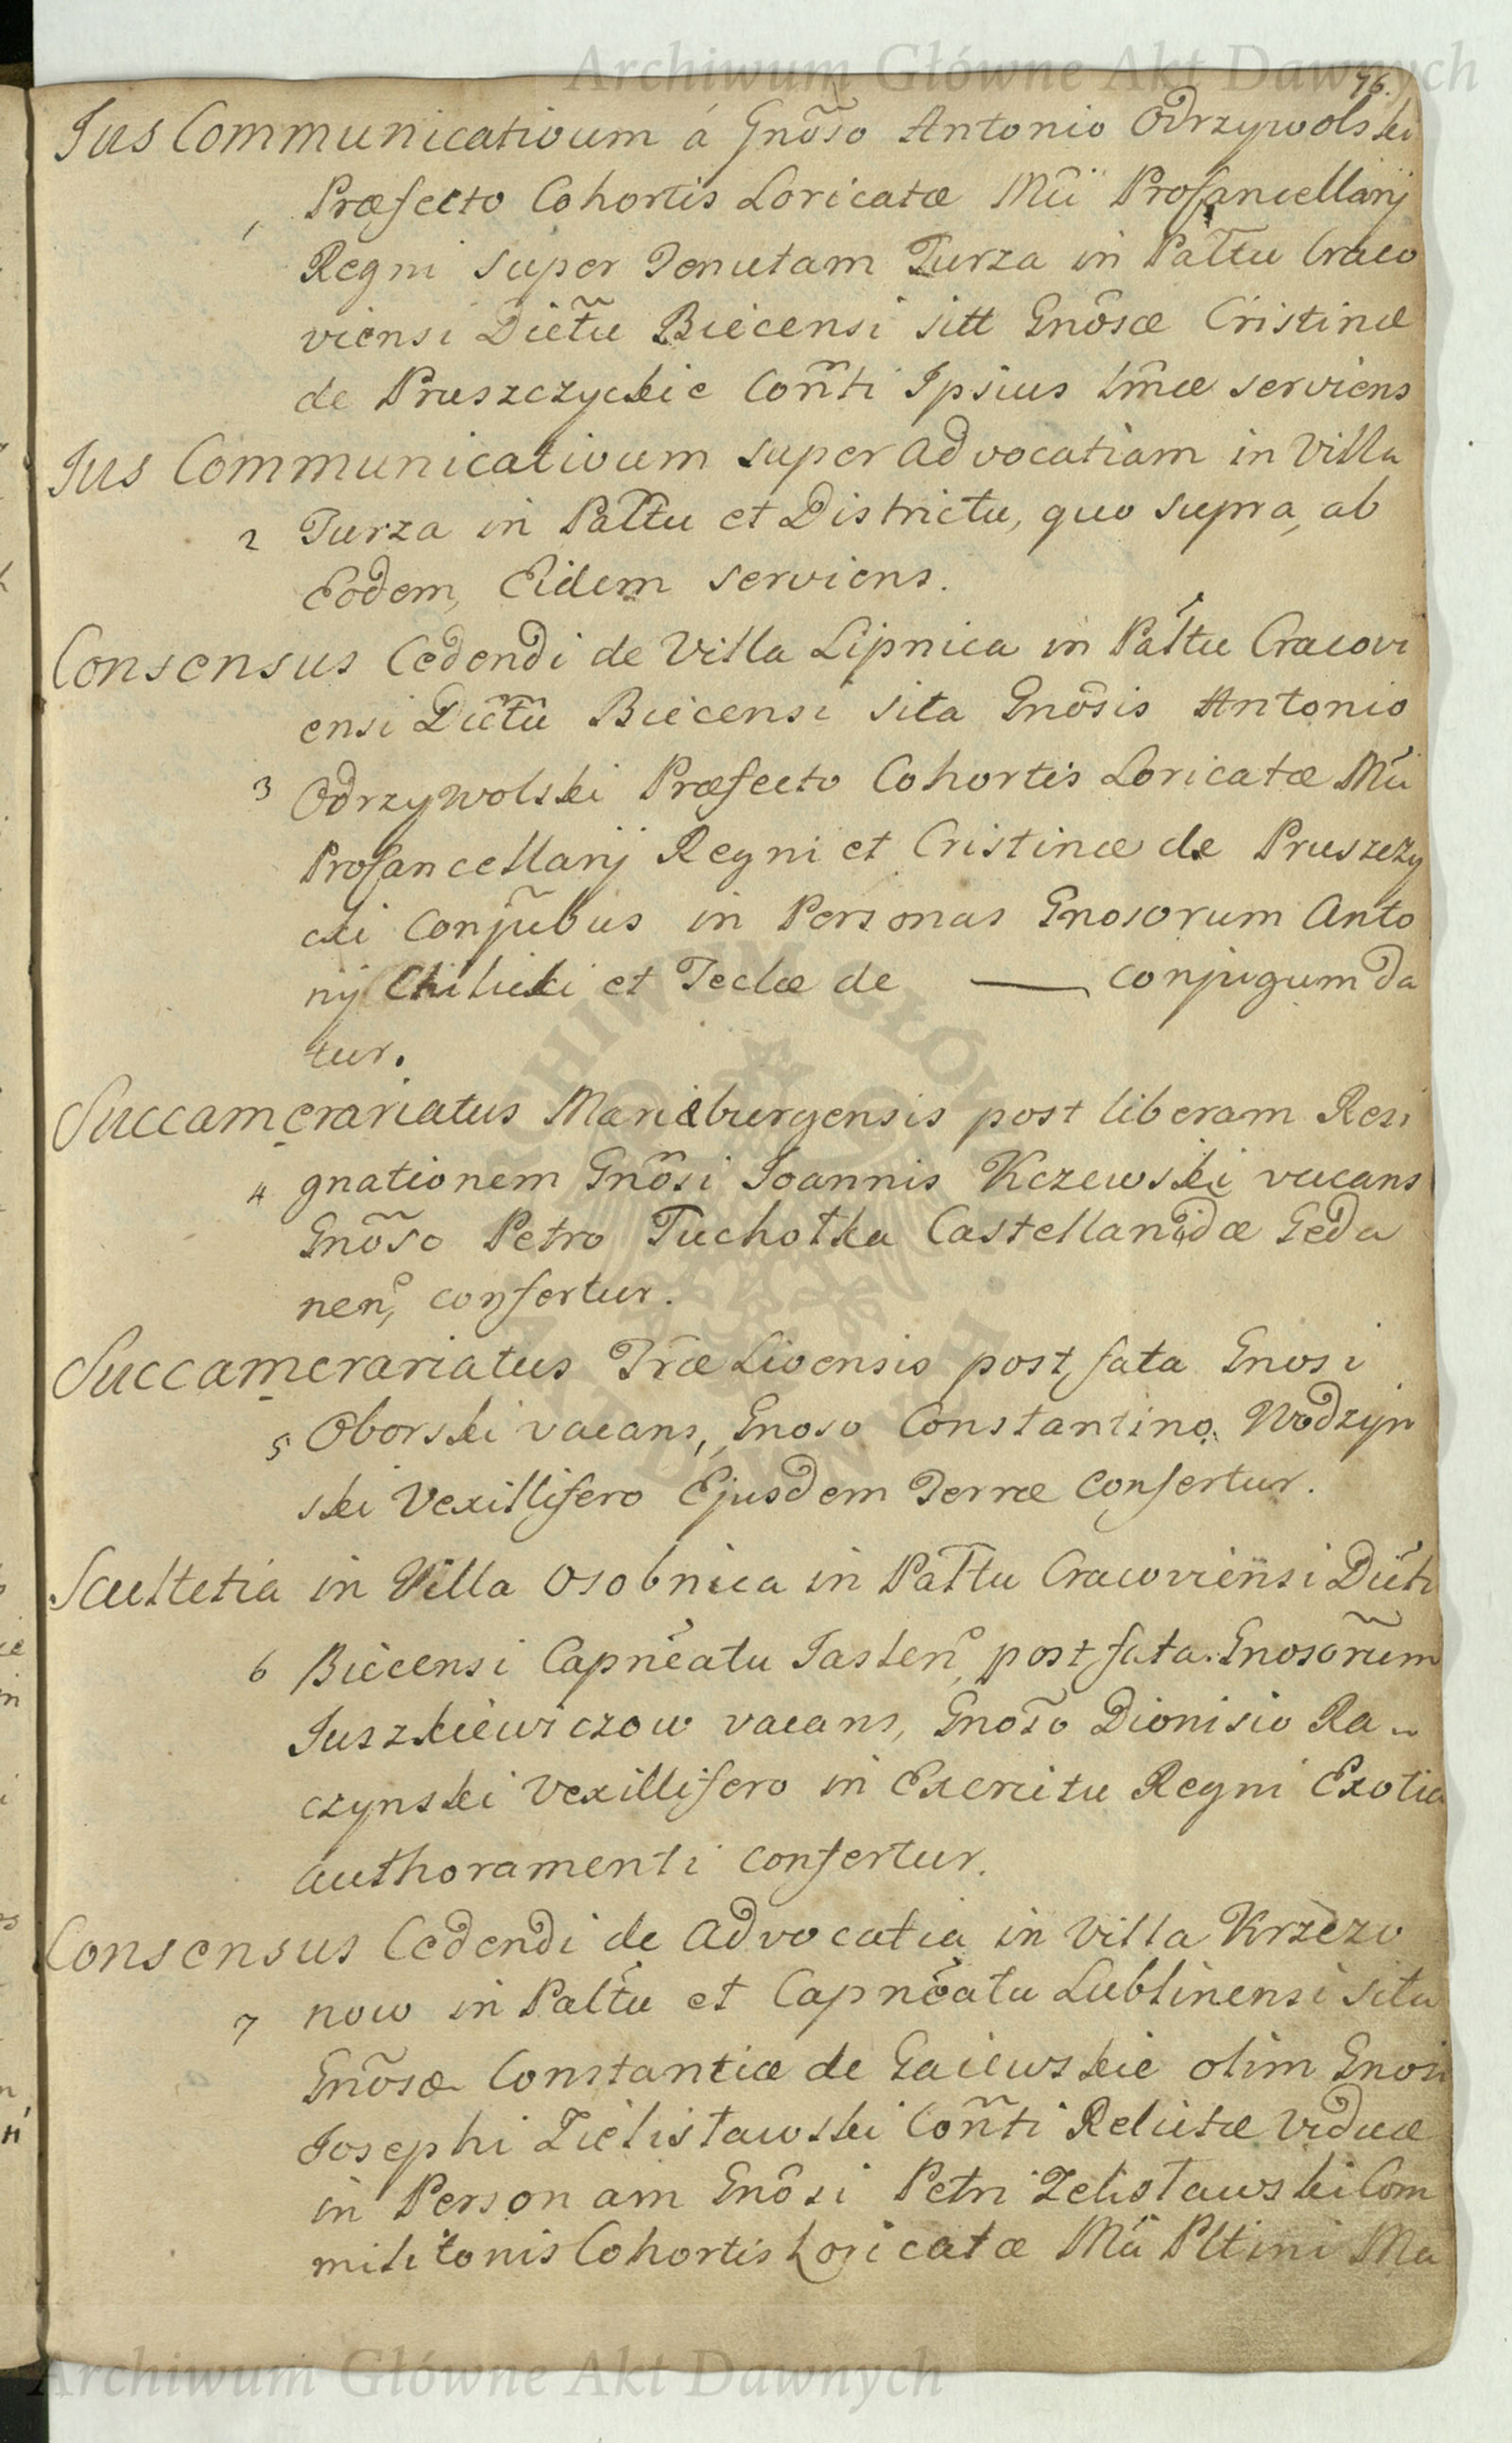 Archiwum Główne Akt Dawnych
76.
Jus Communicativum á Gnõso Antonio Odrzywolski
1 Præfecto Cohortis Loricatæ Mü Procancellarij
Regni super Tenutam Turza in Palttu Craco
viensi Dictũ Biecensi sitt Gnôsæ Cristinæ
de Pruszczyckie Coñti Ipsius Imæ serviens
Jus Communicativum super advocatiam in Villa
2 Turza in Palttu et Districtu, quo supra, ab
Eodem, Eidem serviens.
Consensus Cedendi de Villa Lipnica in Palttu Cracovi
ensi Dictû Biecensi sita Gnôsis Antonio
3 Odrzywolski Præfecto Cohortis Loricatæ Mü
Procancellarij Regni et Cristinæ de Pruszczy
cki Conjũbus in Personas Gnosorum Anto
nij Chilicki et Teclæ de — conjugum da
tur.
Succamerariatus Mariæburgensis post liberam Resi
4 gnationem Gnôsi Joannis Kczewski vacans
Gnõso Petro Tuchołka Castellanidæ Geda
nen, confertur.
Succamerariatus Træ Livensis post fata Gnosi
5 Oborski vacans, Gnoso Constantino Wodzyn
ski Vexillifero Ejusdem Terræ Confertur.
Scultetia in Villa Osobnica in Palttu Cracoviensi Dicti
6 Biecensi Capneatu Jaslen, post fata Gnosorũm
Juszkiewiczow vacans, Gnoso Dionisio Ra-
czynski Vexillifero in Exercitu Regni Exotici
authoramenti confertur.
Consensus Cedendi de advocatia in Villa Krzezo
7 now in Palttu et Capneatu Lublinensi sita
Gnõsæ Constantiæ de Gaiewskie olim Gnosi
Josephi Zielisławski Coñti Relictæ Viduæ
in Personam Gnôsi Petri Zelisławski Com
militonis Cohortis Loricatæ Mü Pltini Ma
Archiwum Główne Akt Dawnych